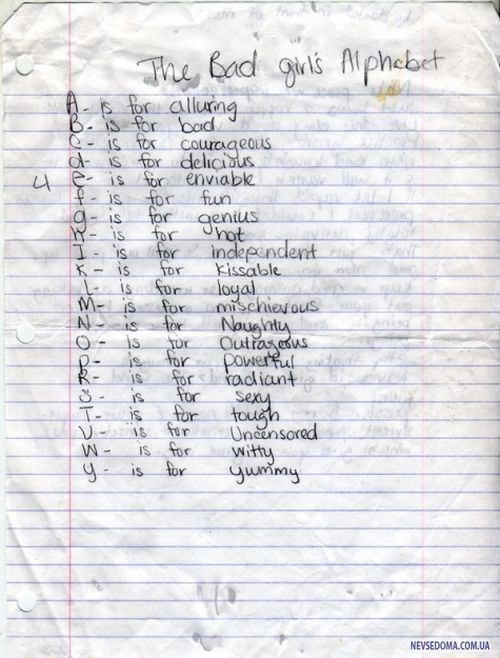 The Bad girl's Alphabet
A- is for alluring
B- is for bad
C- is for courageous
d- is for delicious
4 e- is for enviable
f- is for fun
g- is for genius
H- is for hot
I- is for independent
K- is for kissable
L- is for loyal
M- is for mischievous
N- is for Naughty
O- is for Outrageous
P- is for powerful
R- is for radiant
S- is for sexy
T- is for tough
U- is for Uncensored
W- is for witty
Y- is for yummy
NEVSEDOMA.COM.UA